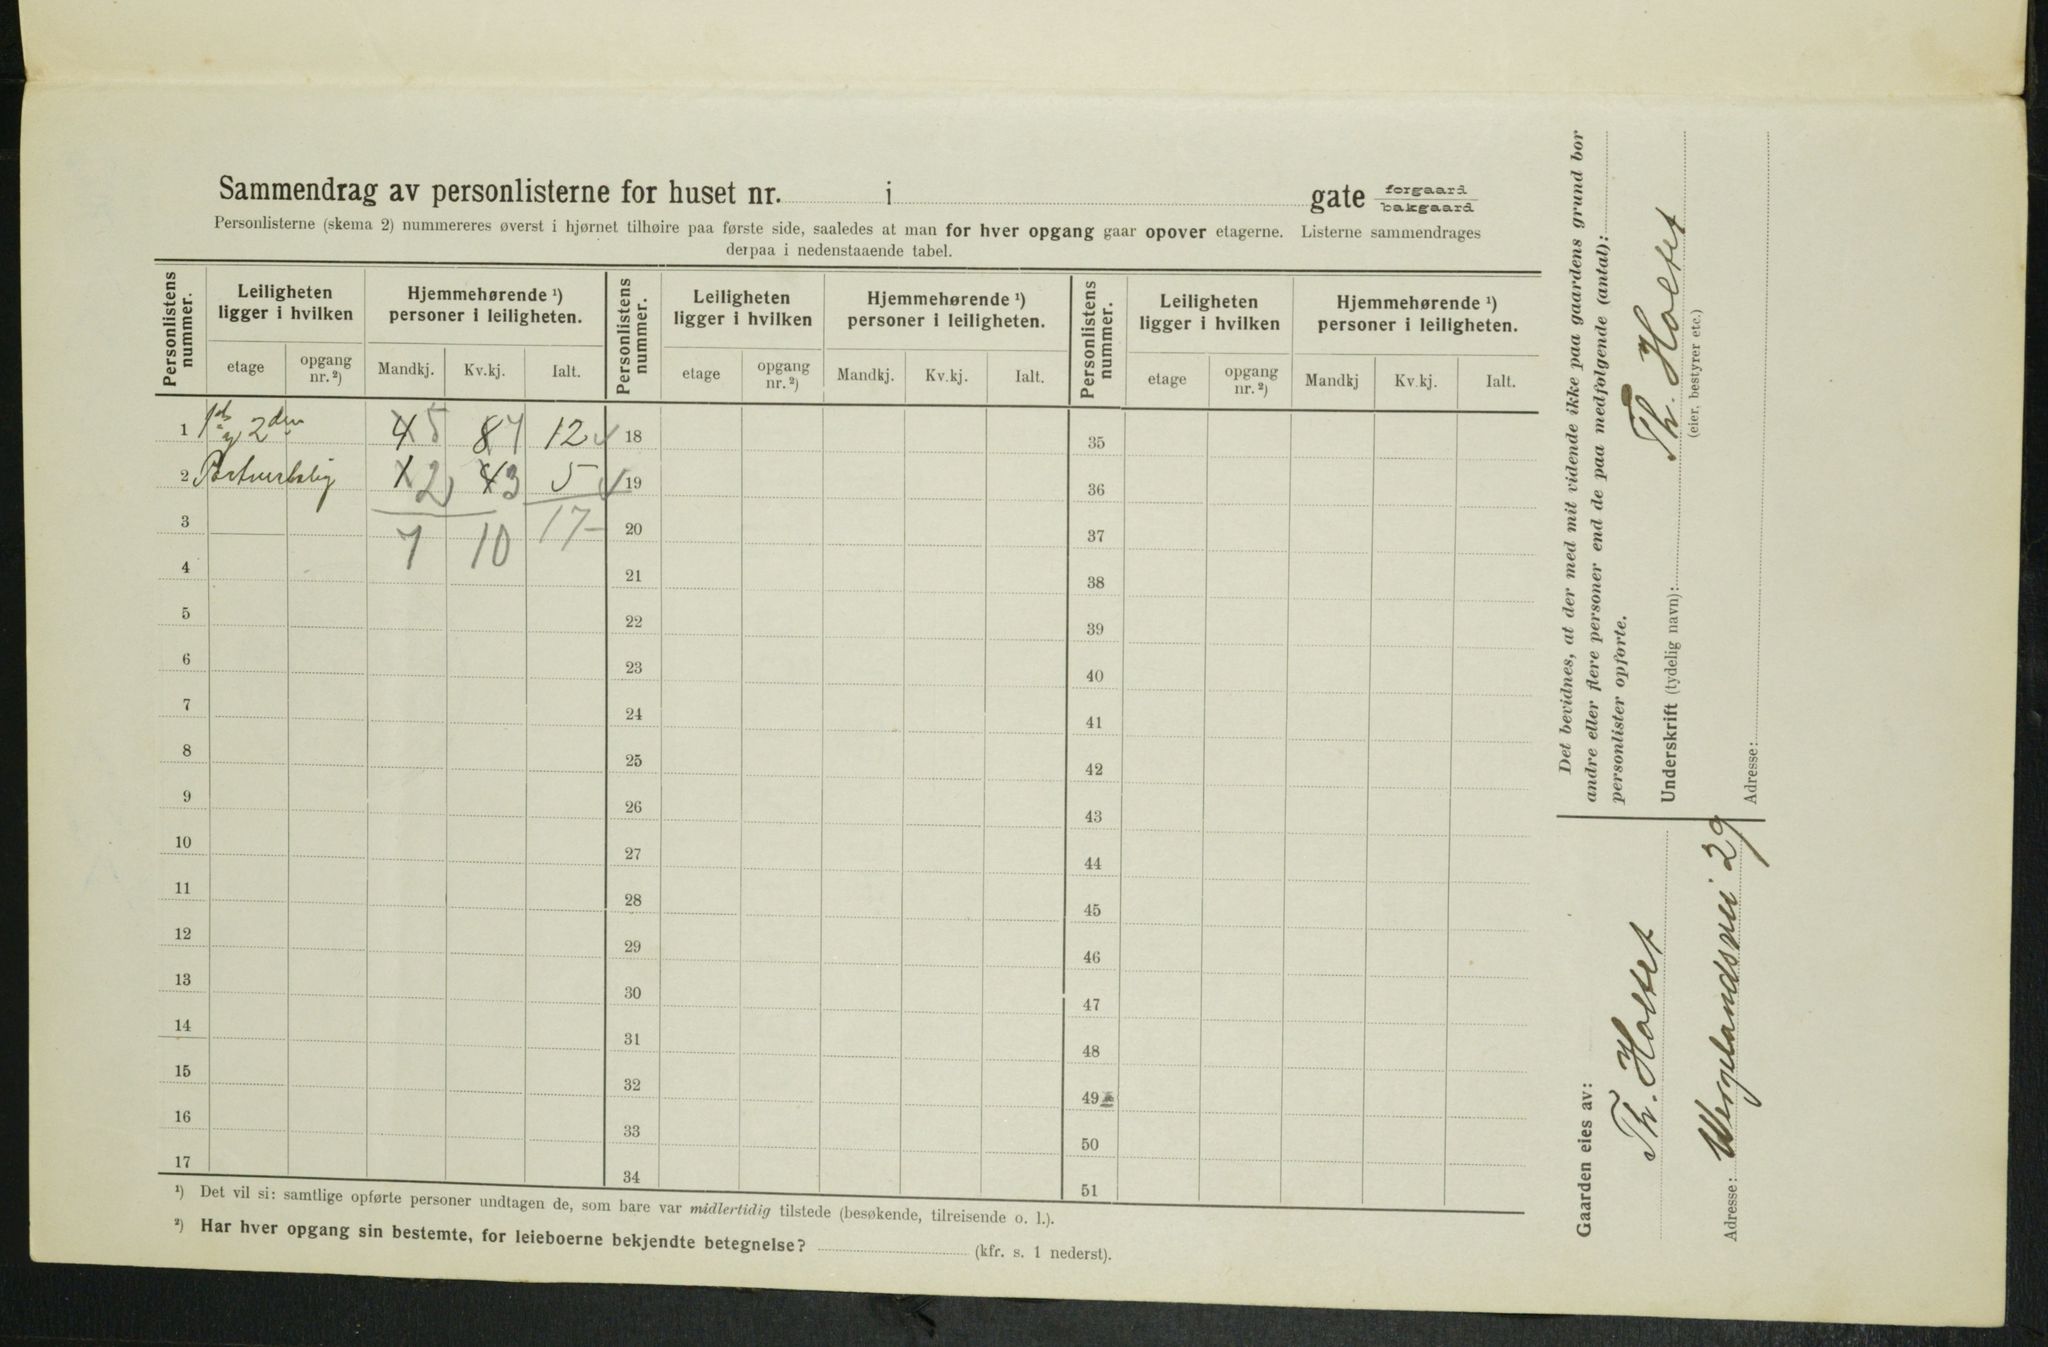 Sammendrag av personlisterne for huset nr. i gate forgaard bakgaard
Personlisterne (skema 2) nummereres øverst i hjørnet tilhøire paa første side, saaledes at man for hver opgang gaar opover etagerne. Listerne sammendrages
derpaa i nedenstaaende tabel.
Personlistens nummer. Leiligheten ligger i hvilken etage opgang nr.²) Hjemmehørende ¹) personer i leiligheten. Mandkj. Kv.kj. Ialt.
Personlistens nummer. Leiligheten ligger i hvilken etage opgang nr.²) Hjemmehørende ¹) personer i leiligheten. Mandkj. Kv.kj. Ialt.
Personlistens nummer. Leiligheten ligger i hvilken etage opgang nr.²) Hjemmehørende ¹) personer i leiligheten. Mandkj Kv.kj. Ialt.
1 2den 4 5 8 7 12 18 35
2 2 4 3 5 19 36
3 7 10 17 20 37
4 21 38
5 22 39
6 23 40
7 24 41
8 25 42
9 26 43
10 27 44
11 28 45
12 29 46
13 30 47
14 31 48
15 32 49
16 33 50
17 34 51
¹) Det vil si: samtlige opførte personer undtagen de, som bare var midlertidig tilstede (besøkende, tilreisende o. l.).
²) Har hver opgang sin bestemte, for leieboerne bekjendte betegnelse? (kfr. s. 1 nederst).
Det bevidnes, at der med mit vidende ikke paa gaardens grund bor
andre eller flere personer end de paa medfølgende (antal):
personlister opførte.
Underskrift (tydelig navn): Th. Holtet
(eier, bestyrer etc.)
Adresse:
Gaarden eies av:
Th. Holtet
Adresse: Wergelandsvei 29